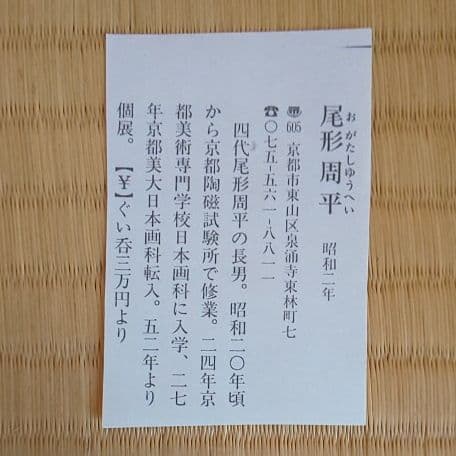 おがたしゆうへい
尾形周平 昭和二年
〠605 京都市東山区泉涌寺東林町七
☎〇七五-五六一-八八一一
四代尾形周平の長男。昭和二〇年頃
から京都陶磁試験所で修業。二四年京
都美術専門学校日本画科に入学、二七
年京都美大日本画科転入。五二年より
個展。【¥】ぐい呑三万円より